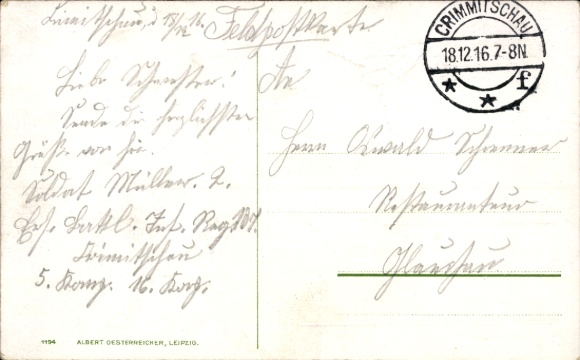 Crimmitschau, d 18/12 16.
Feldpostkarte
CRIMMITSCHAU
18.12.16.7-8N.
* * f
Liebe Schwester!
Sende die herzlichsten
Grüße von hier.
Soldat Müller. 2.
Ers. Batl. Inf. Reg. 107.
Crimitschau
5. Komp. 16. Korp.
An
Herrn Oswald
Restaurateur
Glauchau
1194 ALBERT OESTERREICHER, LEIPZIG.